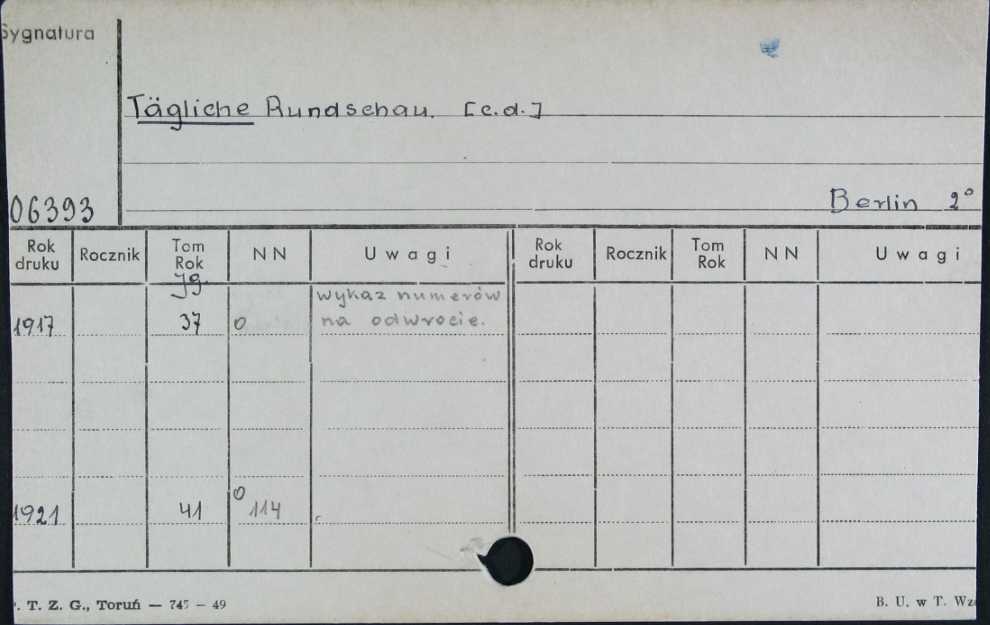 Sygnatura
Tägliche Rundschau. [c.d.]
06393
Berlin 2°
Rok druku Rocznik Tom Rok NN Uwagi Rok druku Rocznik Tom Rok NN Uwagi
Jg. wykaz numerów
1917 37 0 na odwrocie.
0
1921 41 114
. T. Z. G., Toruń — 745 — 49 B. U. w T.